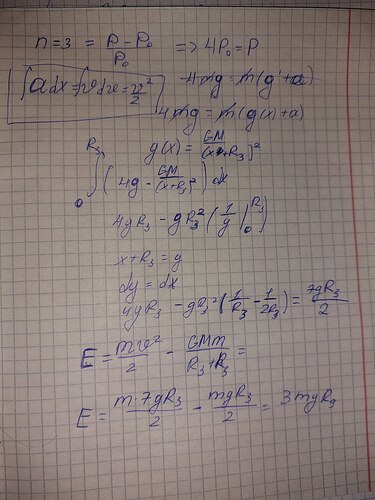 n=3 = (P - P₀)/P₀ => 4P₀ = P
∫a dx = ∫v dv = v²/2
4mg = m(g + a)
4mg = m(g(x) + a)
g(x) = GM/(x+R₃)²
∫₀^R₃ (4g - GM/(x+R₃)²) dx
4gR₃ - gR₃² (1/y |₀^R₃)
x + R₃ = y
dy = dx
4gR₃ - gR₃² (1/R₃ - 1/2R₃) = 7gR₃/2
E = mv²/2 - GMm/(R₃+R₃) =
E = m·7gR₃/2 - mgR₃/2 = 3mgR₃